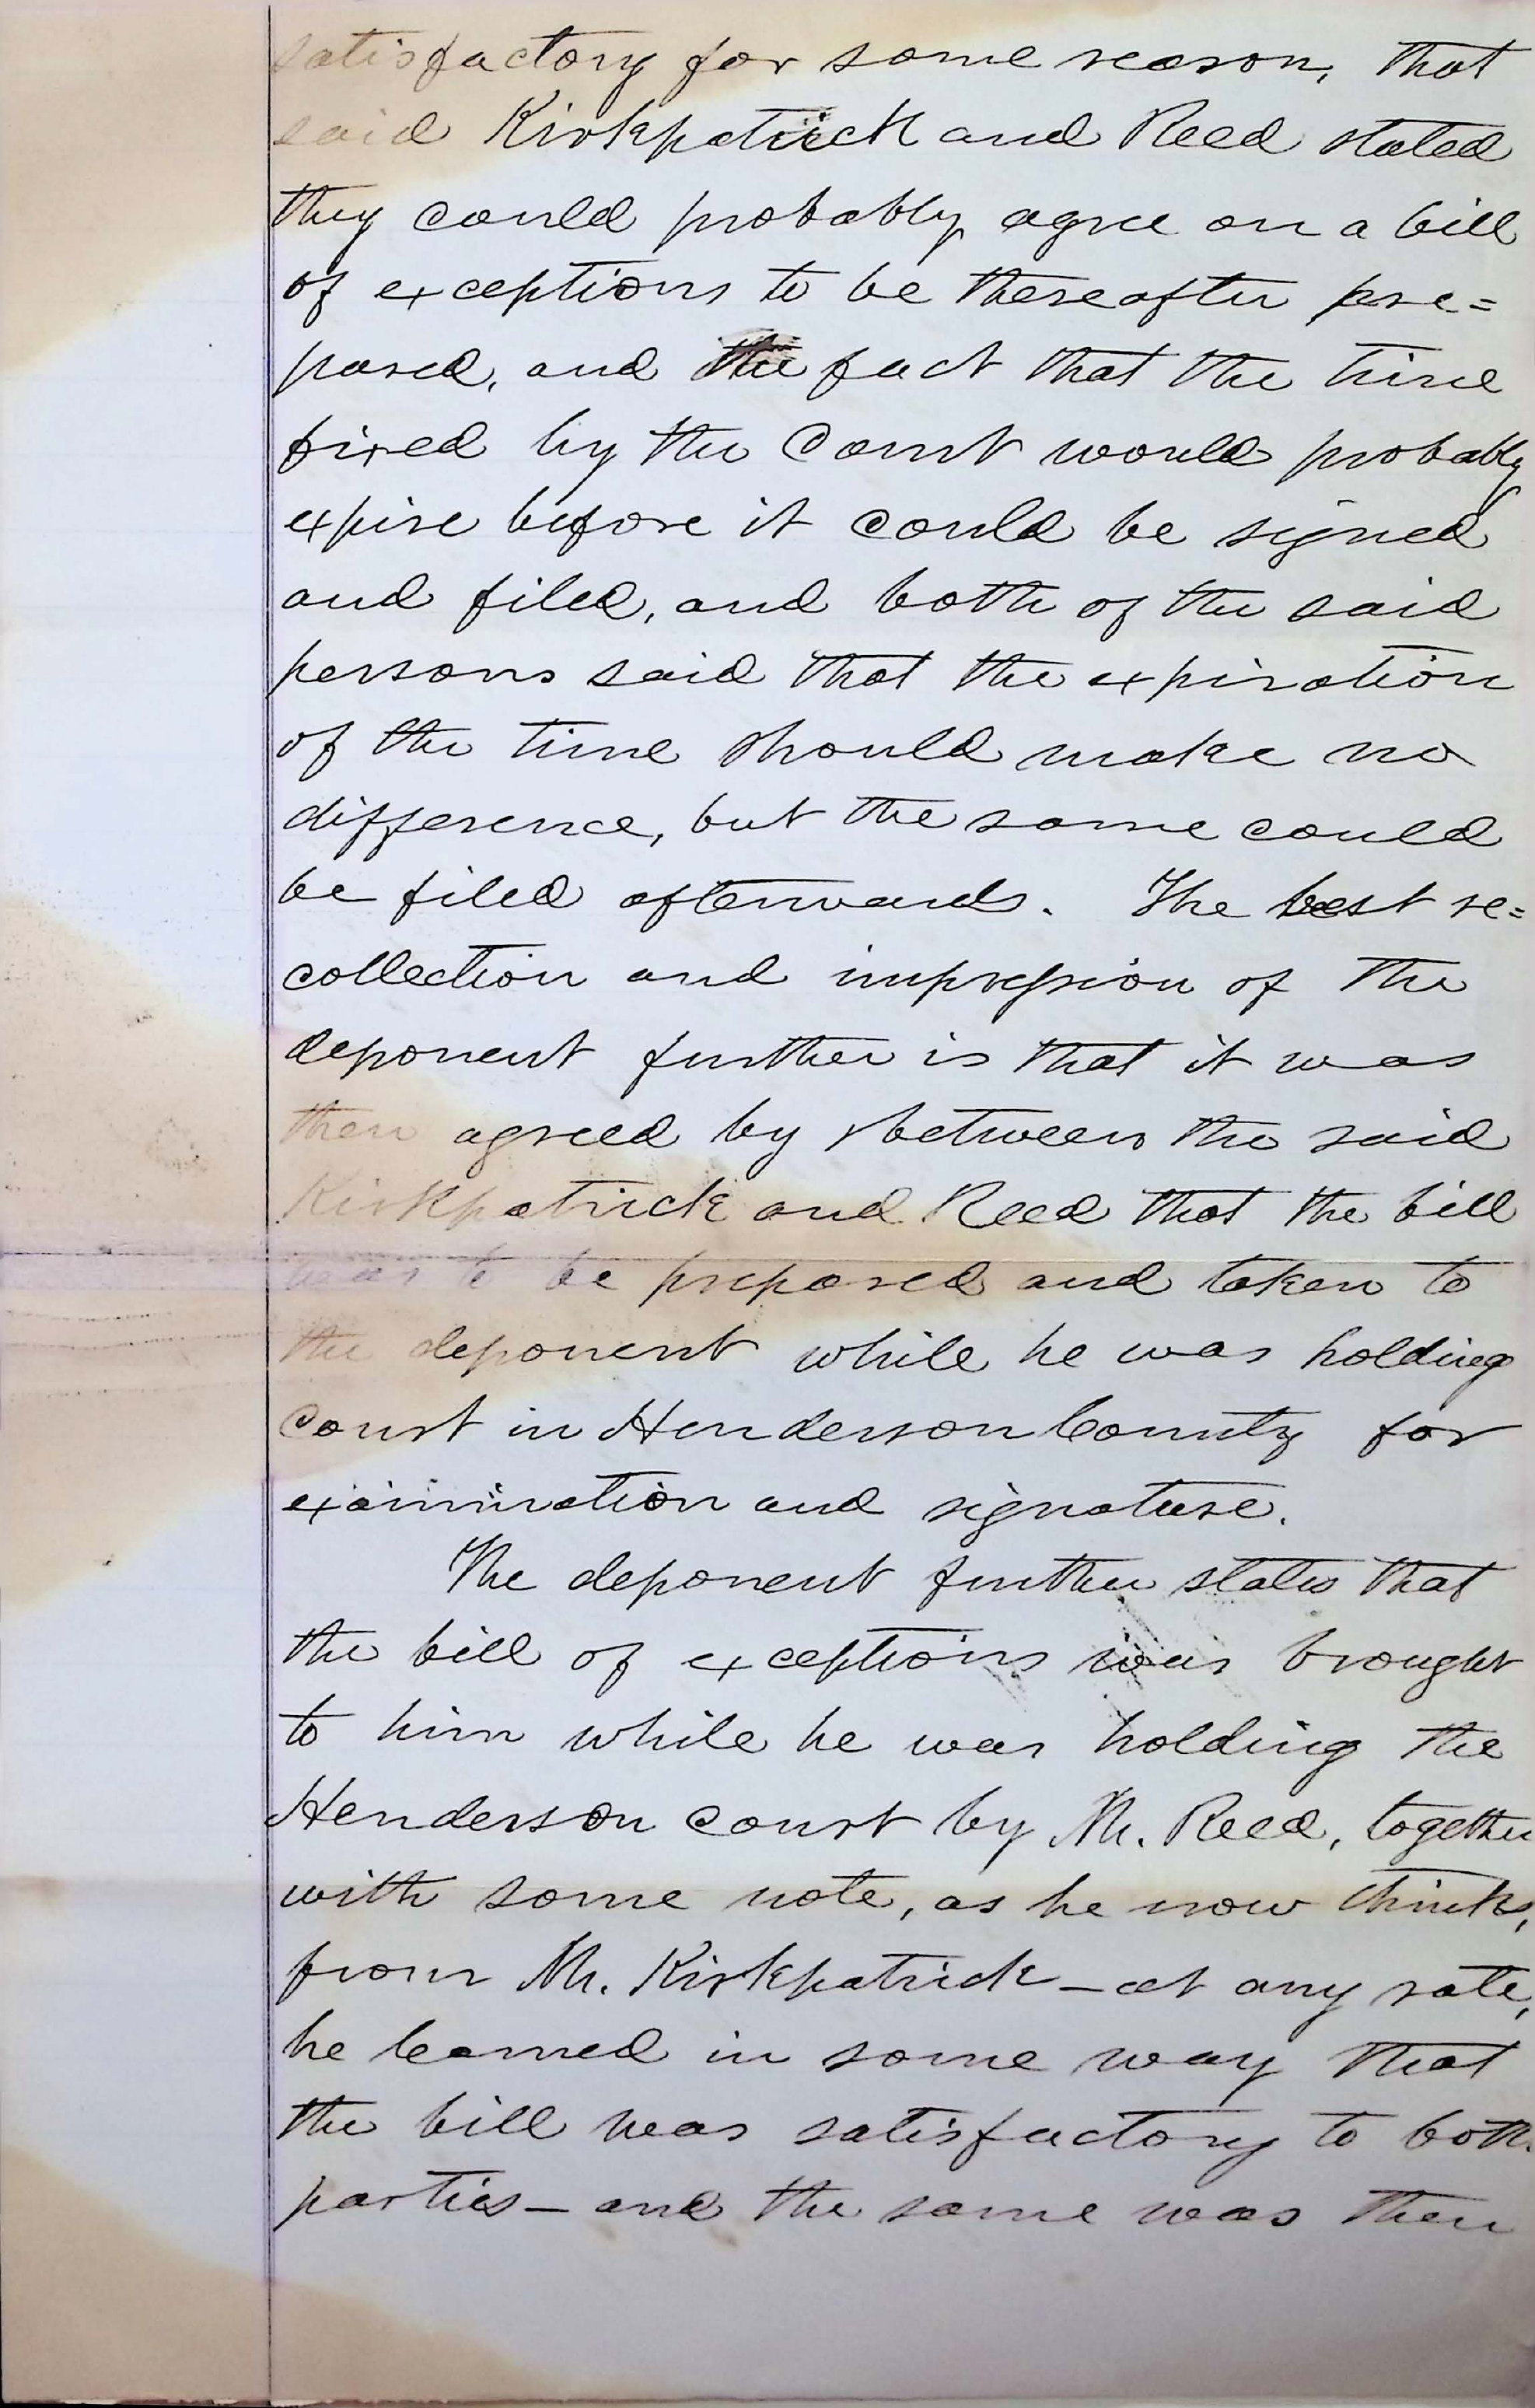 satisfactory for some reason, that
said Kirkpatrick and Reed stated
they could probably agree on a bill
of exceptions to be thereafter pre=
pared, and the fact that the time
fixed by the Court would probably
expire before it could be signed
and filed, and both of the said
persons said that the expiration
of the time should make no
difference, but the same could
be filed afterwards. The best re=
collection and impression of the
deponent further is that it was
then agreed by & between the said
Kirkpatrick and Reed that the bill
was to be prepared and taken to
the deponent while he was holding
court in Henderson County for
examination and signature.
The deponent further states that
the bill of exceptions was brought
to him while he was holding the
Henderson court by Mr. Reed, together
with some note, as he now thinks,
from Mr. Kirkpatrick — at any rate,
he learned in some way that
the bill was satisfactory to both
parties — and the same was then